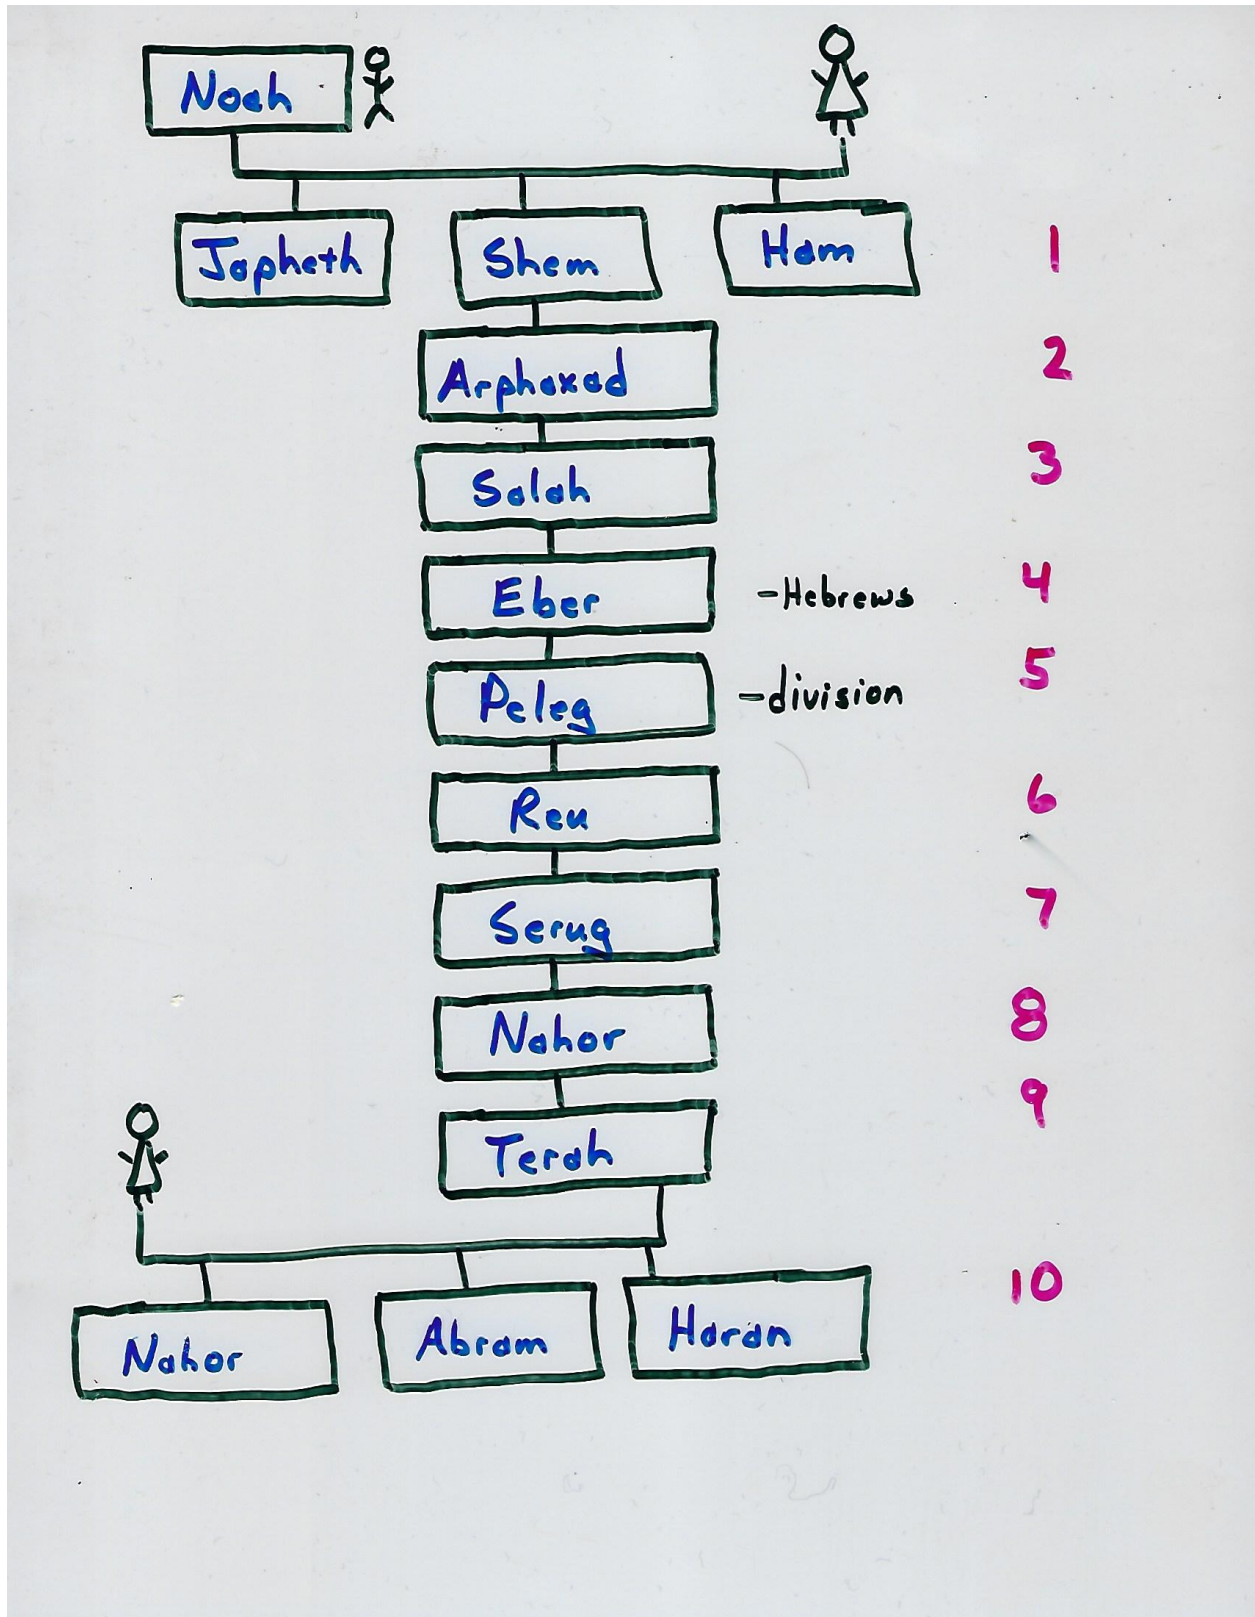 Noah
Japheth Shem Ham 1
Arphaxad 2
Salah 3
Eber -Hebrews 4
Peleg -division 5
Reu 6
Serug 7
Nahor 8
Terah 9
Nahor Abram Haran 10